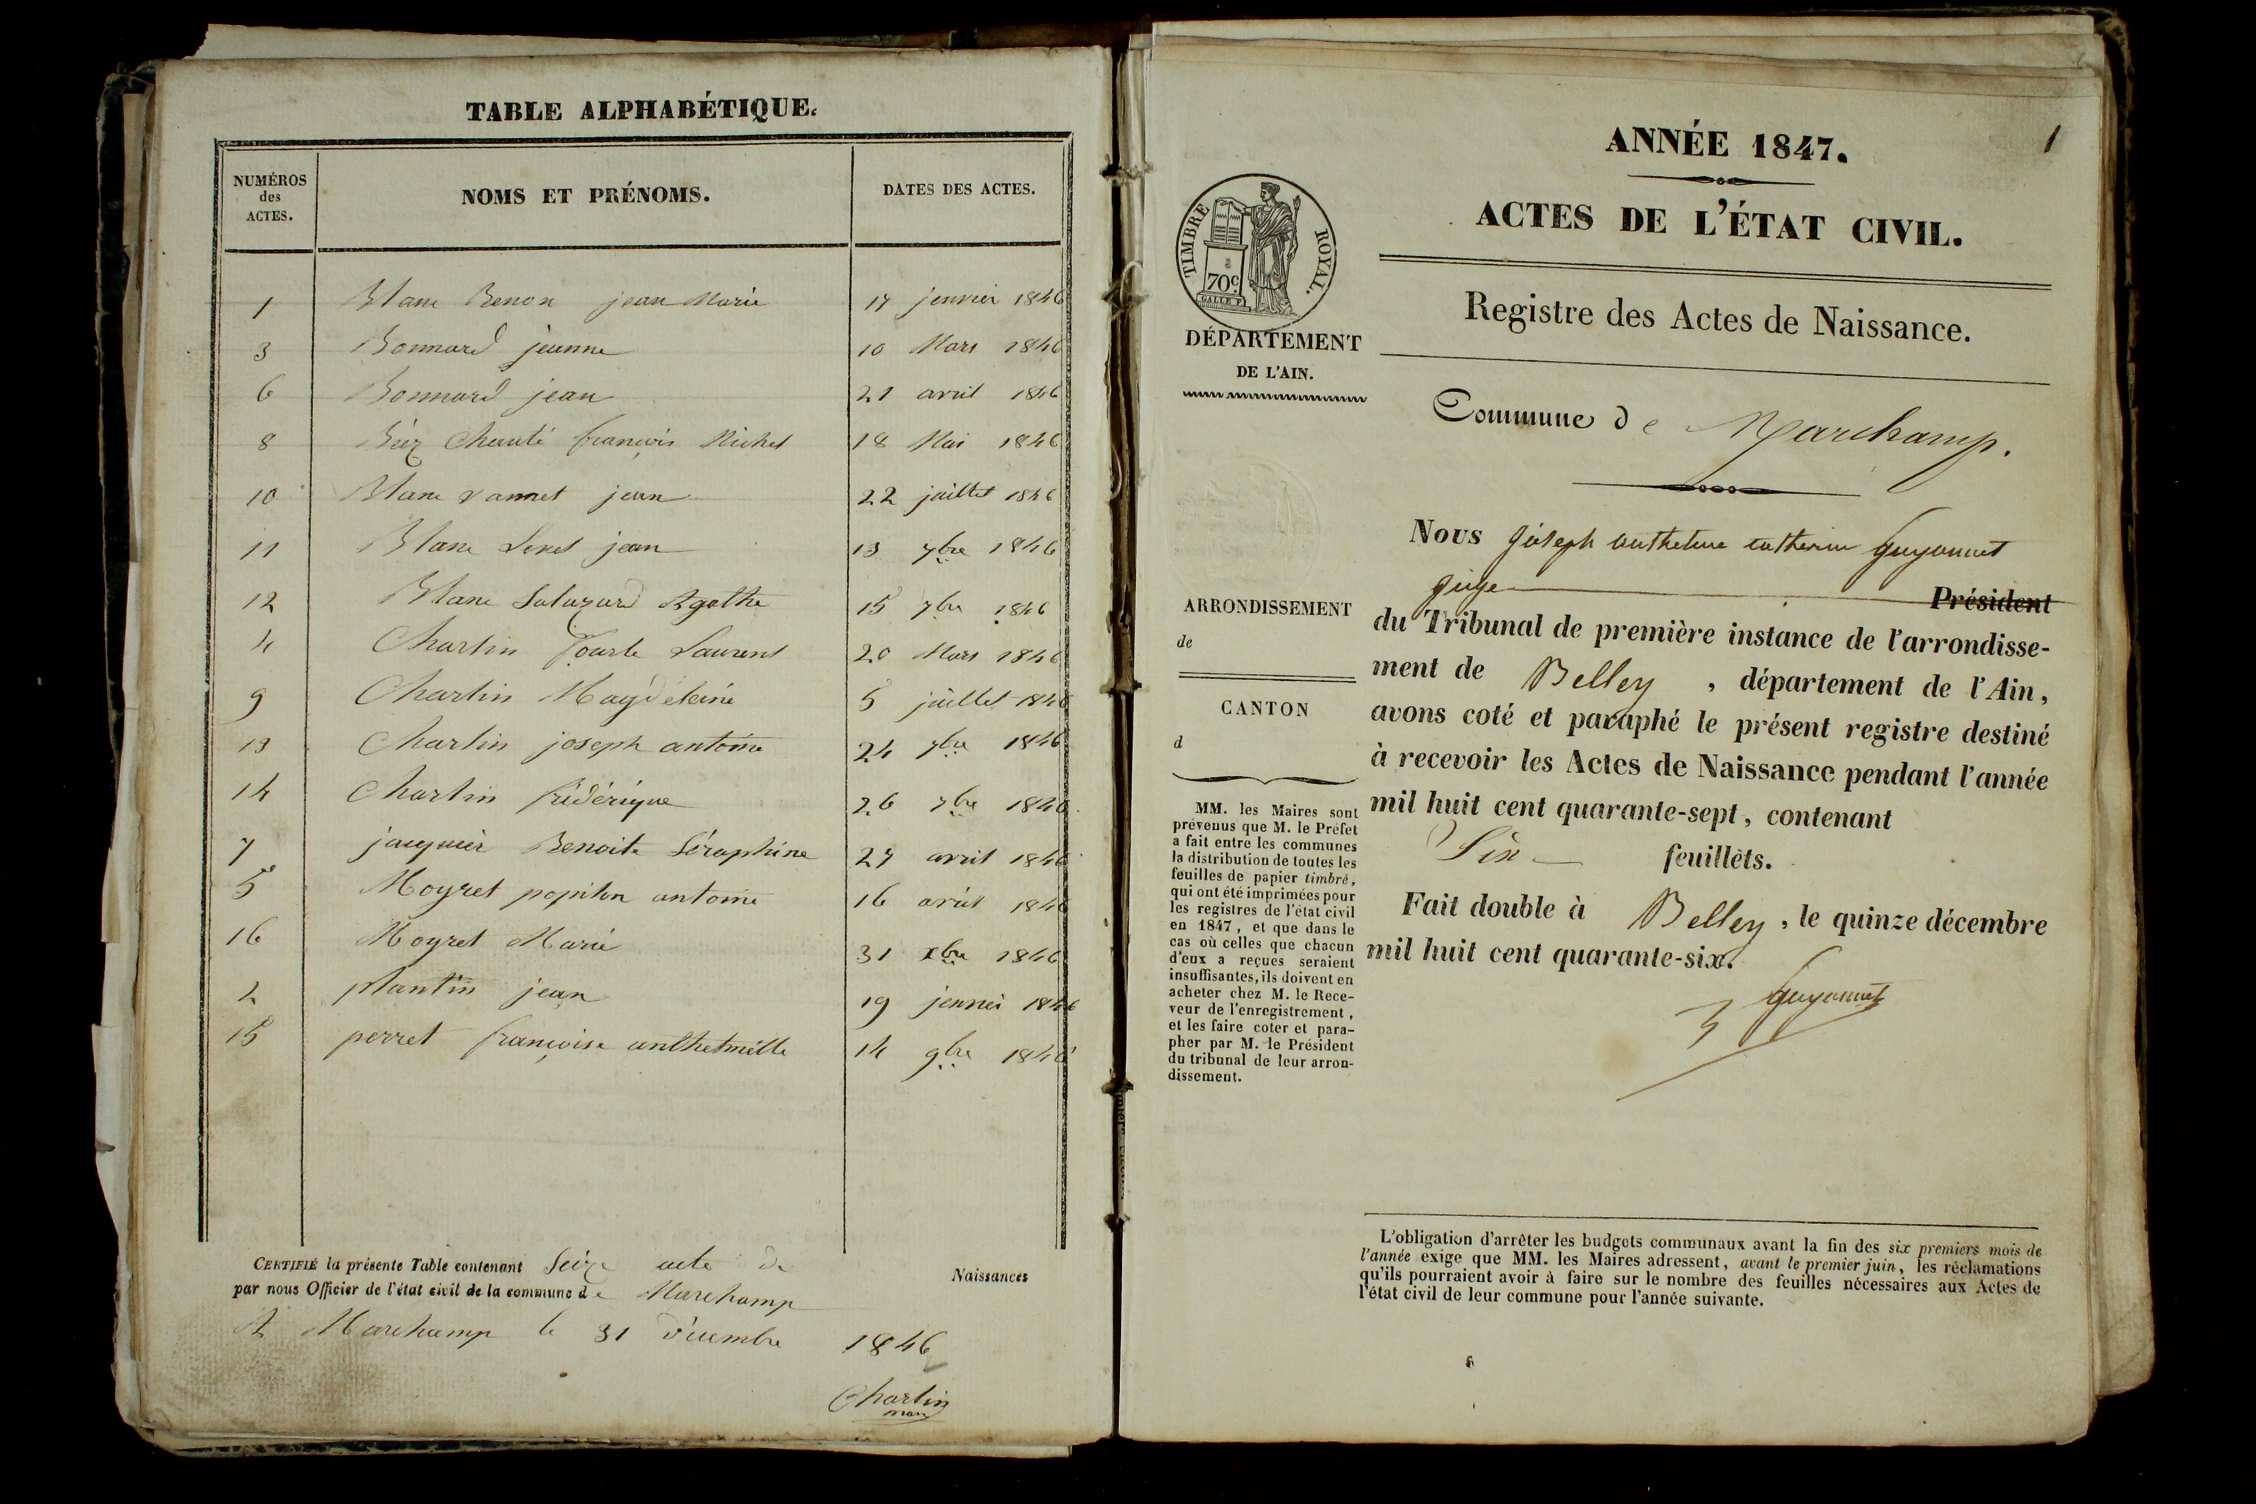 TABLE ALPHABÉTIQUE.
NUMÉROS des ACTES.
NOMS ET PRÉNOMS.
DATES DES ACTES.
1 Blanc Benon jean Marie 17 jenvier 1846
3 Bonnard jeanne 10 Mars 1846
6 Bonnard jean 21 avril 1846
8 françois Michel 18 Mai 1846
10 Blanc vannet jean 22 juillet 1846
11 Blanc jean 13 7bre 1846
12 Blanc Salazard Agathe 15 7bre 1846
4 Charlin Laurent 20 Mars 1846
9 Charlin Magdeleine 5 juillet 1846
13 Charlin joseph antoine 24 7bre 1846
14 Charlin frédérique 26 7bre 1846
7 jacquier Benoite Séraphine 27 avril 1846
5 Moyret papillon antoine 16 avril 1846
16 Moyret Marie 31 xbre 1846
2 plantin jean 19 jenvier 1846
15 perret françoise anthelmette 14 9bre 1846
CERTIFIÉ la présente Table contenant Seize acte de Naissances
par nous Officier de l'état civil de la commune de Marchamp
A Marchamp le 31 décembre 1846
Charlin
maire
1
ANNÉE 1847.
ACTES DE L'ÉTAT CIVIL.
TIMBRE ROYAL.
70c.
Registre des Actes de Naissance.
DÉPARTEMENT
DE L'AIN.
Commune de Marchamp.
Nous joseph anthelme catherin Guyonnet
juge Président
du Tribunal de première instance de l'arrondisse-
ment de Belley, département de l'Ain,
avons coté et paraphé le présent registre destiné
à recevoir les Actes de Naissance pendant l'année
mil huit cent quarante-sept, contenant
Six feuillets.
Fait double à Belley, le quinze décembre
mil huit cent quarante-six.
Guyonnet
ARRONDISSEMENT
de
CANTON
d
MM. les Maires sont
prévenus que M. le Préfet
a fait entre les communes
la distribution de toutes les
feuilles de papier timbré,
qui ont été imprimées pour
les registres de l'état civil
en 1847, et que dans le
cas où celles que chacun
d'eux a reçues seraient
insuffisantes, ils doivent en
acheter chez M. le Rece-
veur de l'enregistrement,
et les faire coter et para-
pher par M. le Président
du tribunal de leur arron-
dissement.
L'obligation d'arrêter les budgets communaux avant la fin des six premiers mois de
l'année exige que MM. les Maires adressent, avant le premier juin, les réclamations
qu'ils pourraient avoir à faire sur le nombre des feuilles nécessaires aux Actes de
l'état civil de leur commune pour l'année suivante.